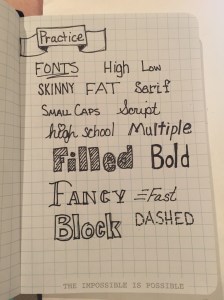 Practice
FONTS High Low
SKINNY FAT Serif
SMALL CAPS Script
high school Multiple
Filled Bold
FANCY Fast
Block DASHED
THE IMPOSSIBLE IS POSSIBLE